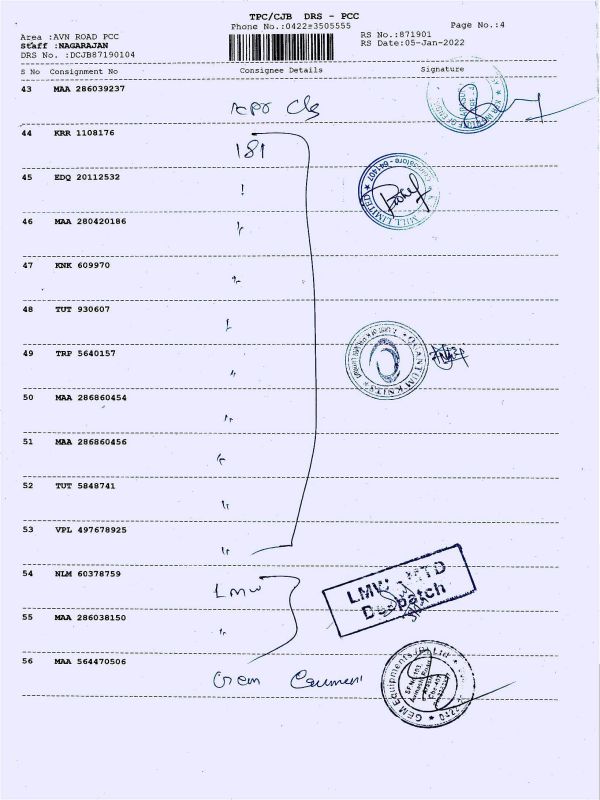 TPC/CJB DRS - PCC
Phone No.:0422±3505555
Page No.:4
Area :AVN ROAD PCC
RS No.:871901
Staff :NAGARAJAN
RS Date:05-Jan-2022
DRS No. :DCJB87190104
S No Consignment No Consignee Details Signature
43 MAA 286039237
44 KRR 1108176
181
45 EDQ 20112532
46 MAA 280420186
47 KNK 609970
48 TUT 930607
49 TRP 5640157
QUANTUM KNITS
50 MAA 286860454
51 MAA 286860456
52 TUT 5848741
53 VPL 497678925
54 NLM 60378759
LMW
LMW LMTD
Despatch
55 MAA 286038150
56 MAA 564470506
Gem
GEM Equipments (P) Ltd